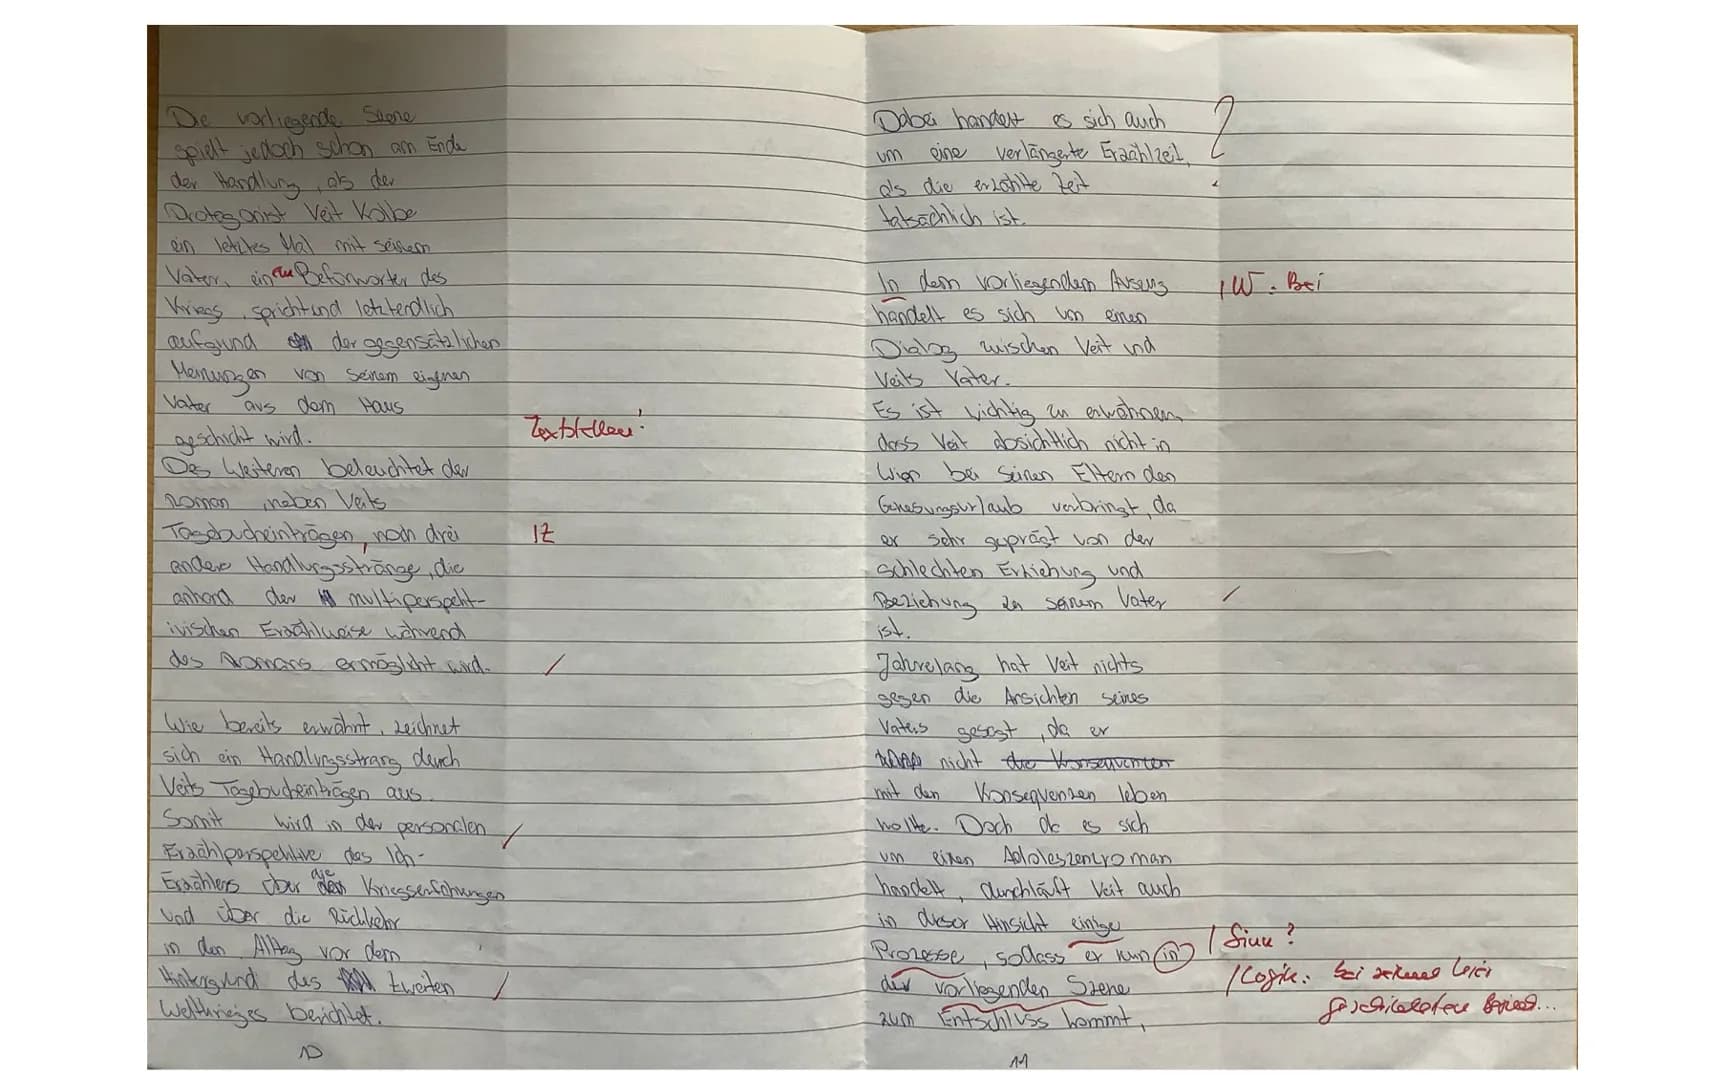 Die vorliegende Szene
spielt jedoch schon am Ende
der Handlung, als der
Protagonist Veit Kolbe
ein letztes Mal mit seinem
Vater, ein en Beforworter des
Kriegs, spricht und letztendlich
aufgrund der gegensätzlichen
Meinungen von seinem eigenen
Vater aus dem Haus
geschickt wird.
Textstellen!
Des Weiteren beleuchtet der
Roman, neben Veits
Tagebucheinträgen, noch drei
1Z
andere Handlungsstränge, die
anhand der multiperspekt-
ivischen Erzählweise während
des Romans ermöglicht wird.
Wie bereits erwähnt, zeichnet
sich ein Handlungsstrang durch
Veits Tagebucheinträgen aus.
Somit wird in der personalen
Erzählperspektive des Ich-
Erzählers über die Kriegserfahrungen
und über die Rückkehr
in den Alltag vor dem
Hintergrund des zweiten
Weltkrieges berichtet.
10
Dabei handelt es sich auch
?
um eine verlängerte Erzählzeit,
als die erzählte Zeit
tatsächlich ist.
In dem vorliegendem Auszug
1W: Bei
handelt es sich um einen
Dialog zwischen Veit und
Veits Vater.
Es ist wichtig zu erwähnen,
dass Veit absichtlich nicht in
Wien bei seinen Eltern den
Genesungsurlaub verbringt, da
er sehr geprägt von der
schlechten Erziehung und
Beziehung zu seinem Vater
ist.
Jahrelang hat Veit nichts
gegen die Ansichten seines
Vaters gesagt, da er
nicht die Konsequenzen
mit den Konsequenzen leben
wollte. Doch da es sich
um einen Adoleszenzroman
handelt, durchläuft Veit auch
in dieser Hinsicht einige
Prozesse, sodass er nun in
/ Sinn?
der vorliegenden Szene
/ Logik:
zum Entschluss kommt,
11